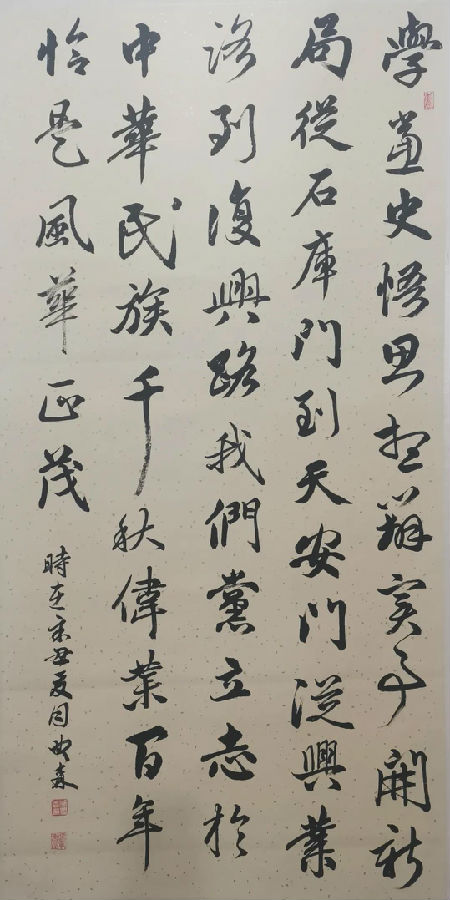 學黨史悟思想辦實事開新
局從石庫門到天安門從興業
路到復興路我們黨立志於
中華民族千秋偉業百年
恰是風華正茂
時在辛丑夏周